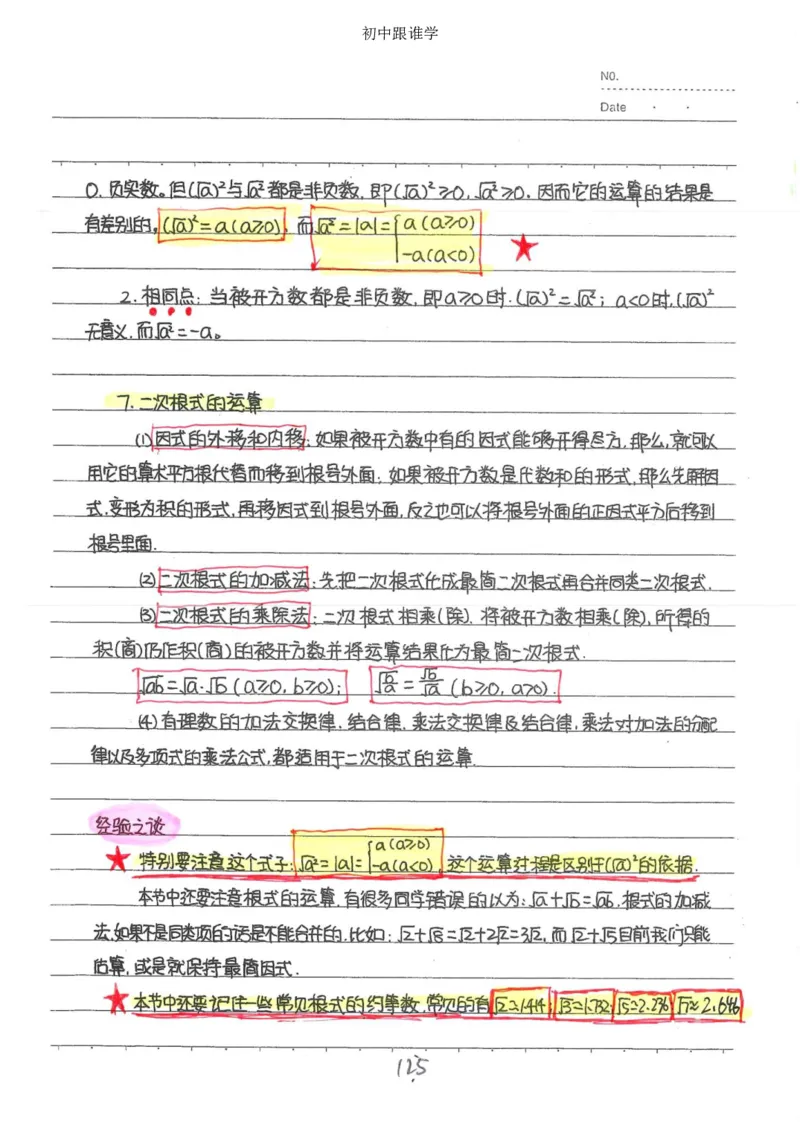 初中跟谁学
NO.
Date
0.负实数。但(√a)²与√a²都是非负数,即(√a)²≥0,√a²≥0。因而它的运算的结果是
有差别的,(√a)²=a(a≥0),而√a²=|a|={a(a≥0)
-a(a<0)
2.相同点:当被开方数都是非负数,即a≥0时.(√a)²=√a²;a<0时,(√a)²
无意义,而√a²=-a。
7.二次根式的运算
(1)因式的外移和内移:如果被开方数中有的因式能够开得尽方,那么,就可以
用它的算术平方根代替而移到根号外面;如果被开方数是代数和的形式,那么先解因
式,变形为积的形式,再移因式到根号外面,反之也可以将根号外面的正因式平方后移到
根号里面.
(2)二次根式的加减法:先把二次根式化成最简二次根式再合并同类二次根式.
(3)二次根式的乘除法:二次根式相乘(除),将被开方数相乘(除),所得的
积(商)仍作积(商)的被开方数并将运算结果化为最简二次根式.
√ab=√a·√b(a≥0,b≥0); √(b/a)=√b/√a(b≥0,a>0).
(4)有理数的加法交换律,结合律,乘法交换律及结合律,乘法对加法的分配
律以及多项式的乘法公式,都适用于二次根式的运算.
经验之谈
★特别要注意这个式子:√a²=|a|={a(a≥0) -a(a<0),这个运算过程是区别于(√a)²的依据.
本节中还要注意根式的运算,有很多同学错误的以为:√a+√b=√ab,根式的加减
法,如果不是同类项的话是不能合并的.比如:√2+√8=√2+2√2=3√2,而√2+√5目前我们只能
估算,或是就保持最简因式.
★本节中还要记住一些常见根式的约等数,常见的有√2≈1.414;√3≈1.732;√5≈2.236 √7≈2.646
125